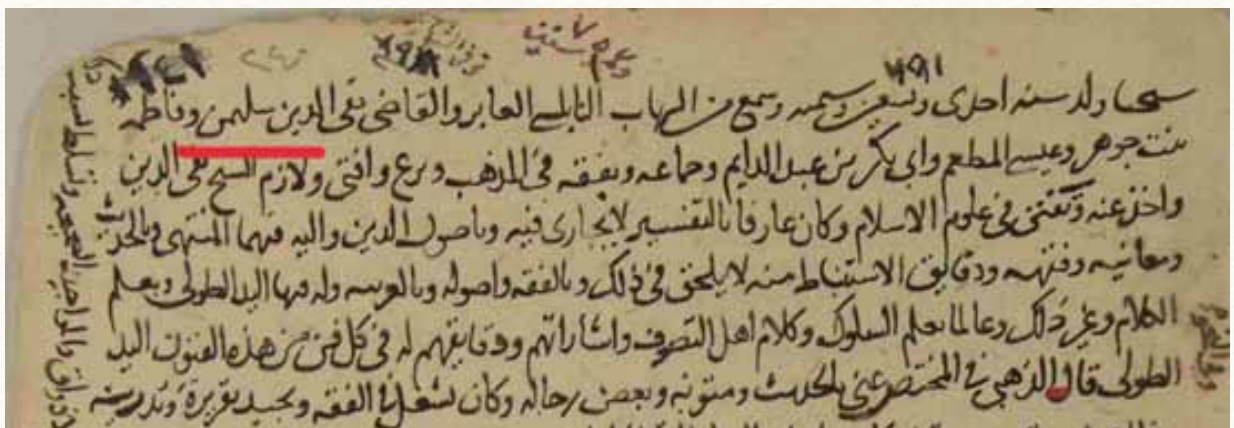 ٦٩١
شيخنا ولد سنه احدى وتسعين وستميه وسمع من الشهاب النابلسي العابر والقاضي تقي الدين سليمن وفاطمه
بنت جوهر وعيسى المطعم وابي بكر بن عبد الدايم وجماعه وتفقه في المذهب وبرع وافتى ولازم الشيخ تقي الدين
واخذ عنه وتفنن في علوم الاسلام وكان عارفا بالتفسير لا يجارى فيه وباصول الدين واليه فيهما المنتهى وبالحديث
ومعانيه وفقهه ودقايق الاستنباط منه لا يلحق في ذلك وبالفقه واصوله وبالعربيه وله فيها اليد الطولى وبعلم
الكلام وغير ذلك وعالما بعلم السلوك وكلام اهل التصوف واشاراتهم ودقايقهم له في كل فن من هذه الفنون اليد
الطولى قال الذهبي في المختصر عني بالحديث ومتونه وبعض رجاله وكان يشتغل في الفقه ويجيد تقريره وتدريسه